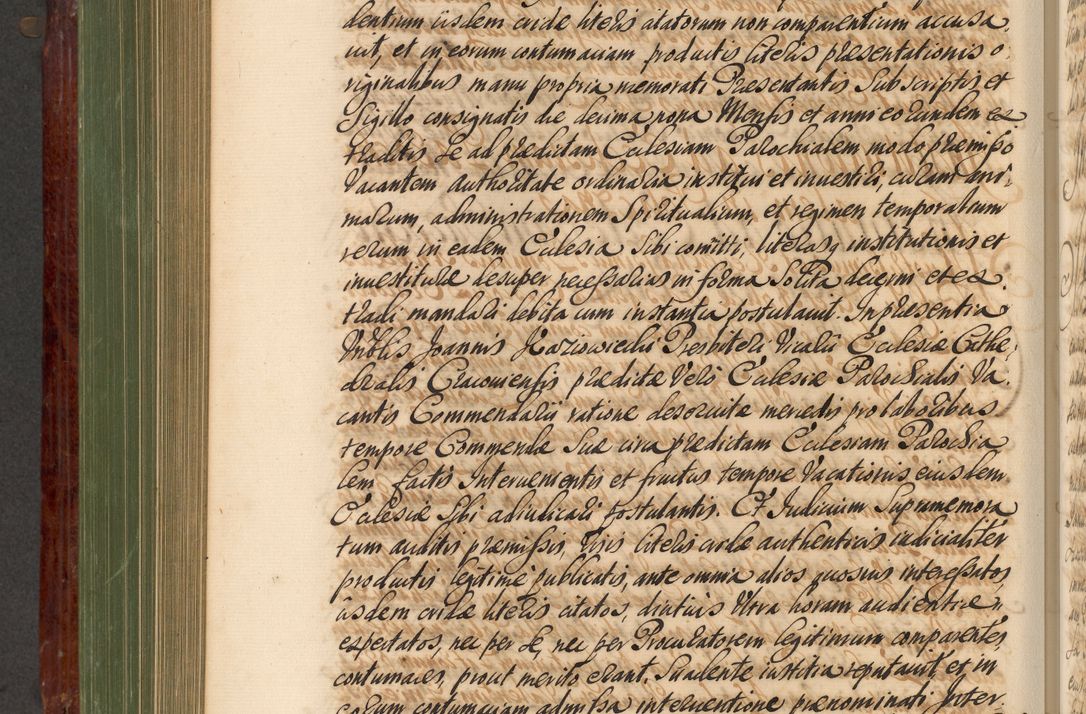 dentium iisdem cridæ literis citatorum non comparentium accusa
vit, et in eorum contumaciam productis literis præsentationis o
riginalibus manu propria memorati Præsentantis Subscriptis et
Sigillo consignatis die decima nona Mensis et anni eorundem ex
traditis se ad prædictam Ecclesiam Parochialem modo præmisso
Vacantem authoritate ordinaria institui et investiri, curam ani
marum, administrationem Spiritualium, et regimen temporalium
rerum in eadem Ecclesia Sibi comitti, literasq institutionis et
investituræ desuper necessarias in forma Solita decerni et ex
tradi mandari debita cum instantia postulavit. In præsentia
Vnblis Joannis Presbiteri Vicarii Ecclesiæ Cathe
dralis Cracoviensis prædictæ Vero Ecclesiæ Parochialis Va
cantis Commendarii ratione deservitæ mercedis pro laboribus
tempore Commendæ Suæ circa prædictam Ecclesiam Parochia
lem factis Intervenientis et fructus tempore Vacationis eiusdem
Ecclesiæ Sibi adiudicari postulantis. Et Iudicium Supramemora
tum auditis præmissis, literis cridæ authenticis iudicialiter
productis legitimé publicatis, ante omnia alios quosvis interessatos
iisdem cridæ literis citatos, diutius Ultra horam audientiæ
expectatos, nec per Se, nec per Procuratorem legitimum comparentes,
contumaces, prout merito erant. Suadente iustitia reputavit, et in
eorum contumaciam admissa interventione prænominati Inter-